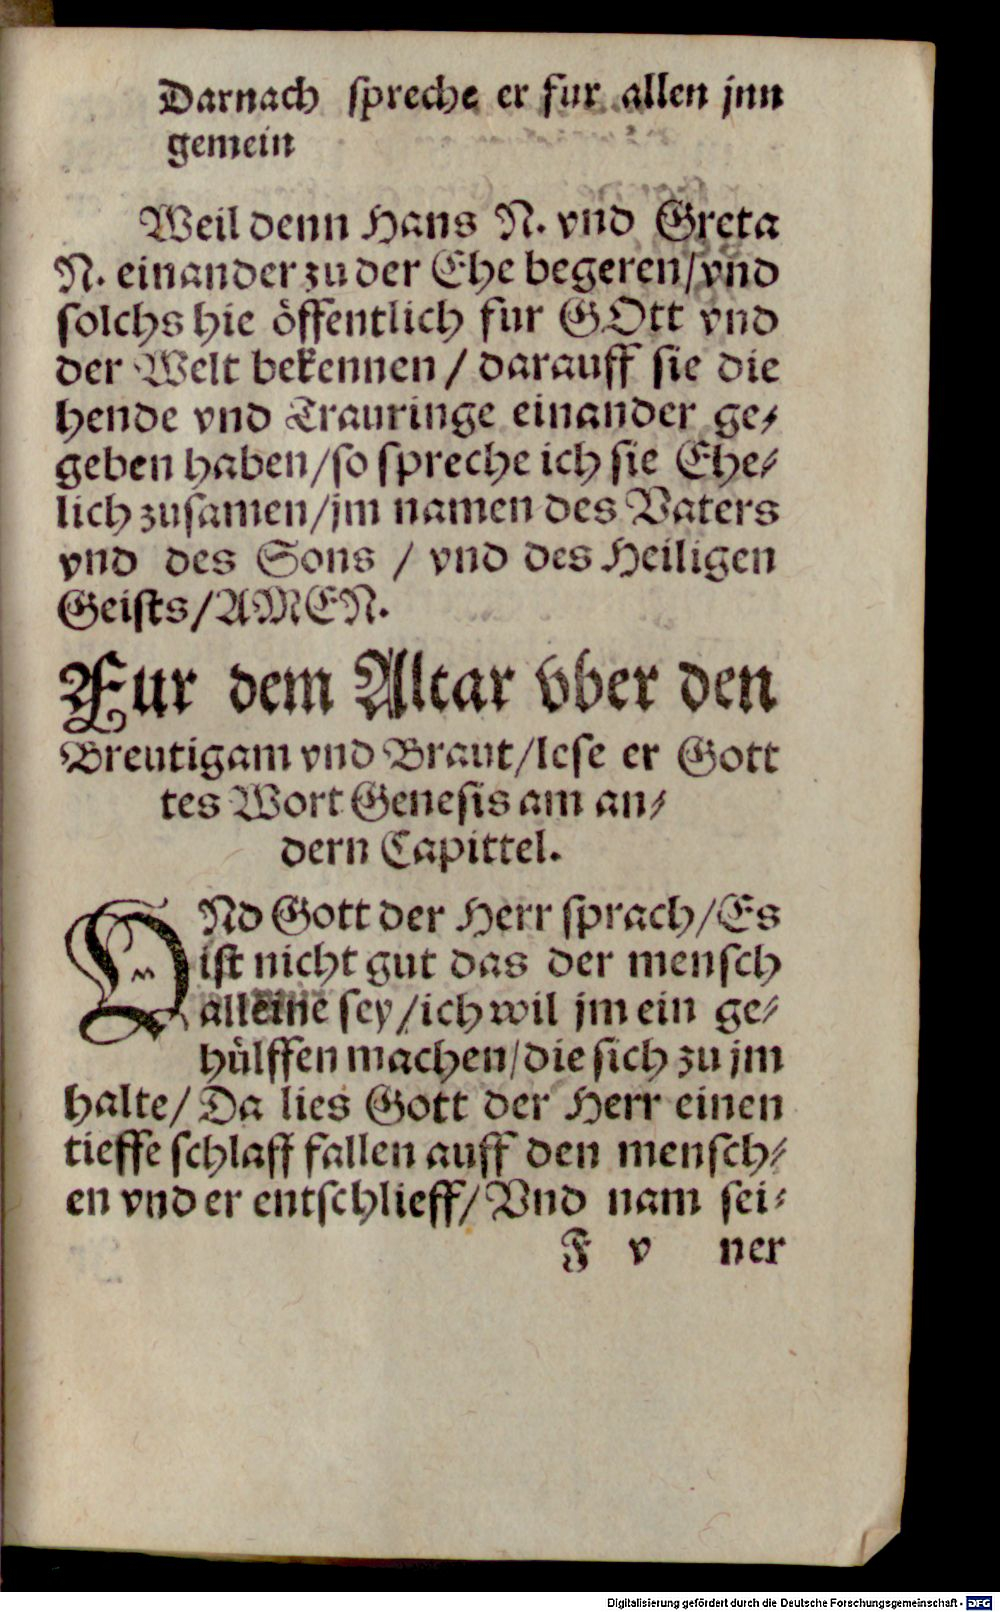 Darnach spreche er fur allen jnn
gemein
Weil denn Hans N. vnd Greta
N. einander zu der Ehe begeren/vnd
solchs hie öffentlich fur GOtt vnd
der Welt bekennen / darauff sie die
hende vnd Trauringe einander ge⸗
geben haben/so spreche ich sie Ehe⸗
lich zusamen/jm namen des Vaters
vnd des Sons / vnd des Heiligen
Geists/AMEN.
Fur dem Altar vber den
Breutigam vnd Braut/lese er Gott
tes Wort Genesis am an⸗
dern Capittel.
VNd Gott der Herr sprach/Es
ist nicht gut das der mensch
alleine sey/ich wil jm ein ge⸗
hülffen machen/die sich zu jm
halte/ Da lies Gott der Herr einen
tieffe schlaff fallen auff den mensch⸗
en vnd er entschlieff/ Vnd nam sei⸗
F v ner
Digitalisierung gefördert durch die Deutsche Forschungsgemeinschaft - DFG